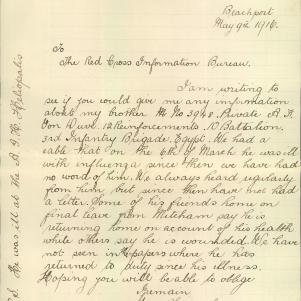 Beachport
May 9th 1916.
To
The Red Cross Information Bureau.
I am writing to
see if you could give me any information
about my brother Mr No 3948. Private A. F.
Von Duve. 12 Reinforcements. 10 Battalion.
3rd Infantry Brigade, Egypt. We had a
cable that on the 6th of March he was ill
with influenza since then we have had
no word of him. We always heard regularly
from him, but since then have not had
a letter. Some of his friends home on
final leave from Mitcham say he is
returning home on account of his health
while others say he is wounded. We have
not seen in papers where he has
returned to duty since his illness.
Hoping you will be able to oblige
I remain
P.S. He was ill at the A. G. H. Heliopolis